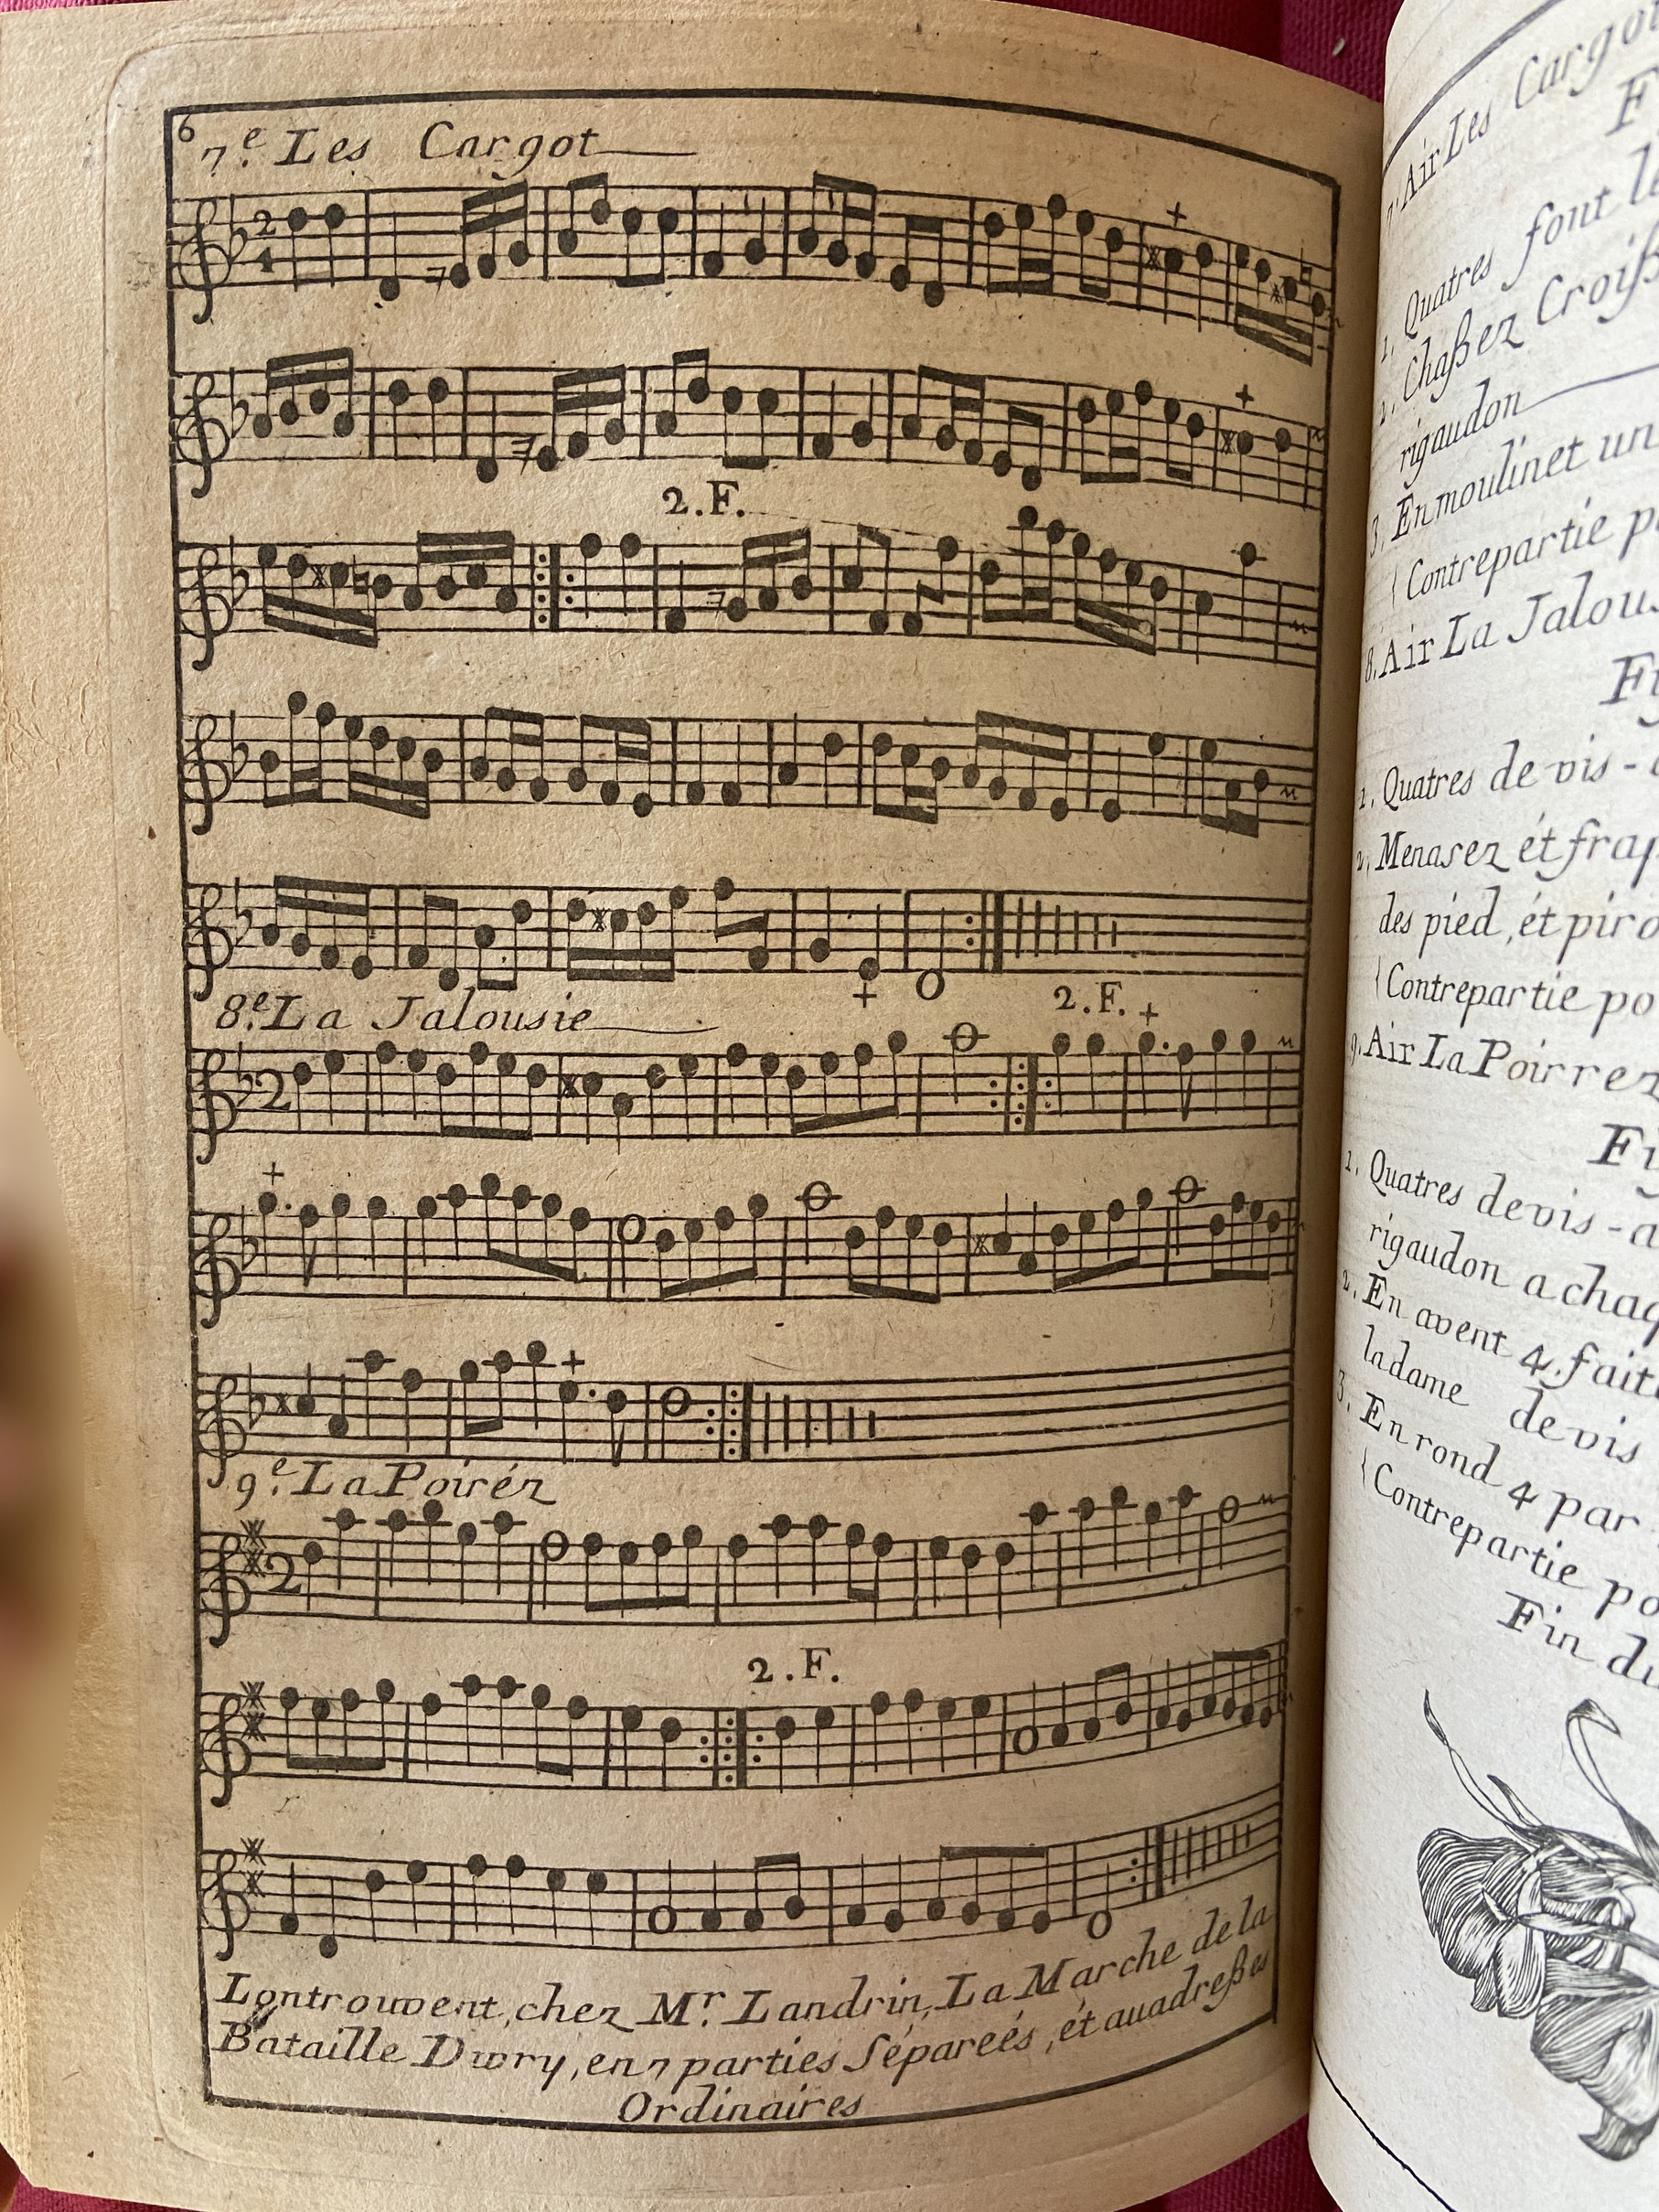 6
7.e Les Cargot
2
4
2.F.
8.e La Jalousie
2.F.
2
9.e La Poiréz
2
2.F.
Lontrouvent, chez Mr. Landrin, La Marche de la
Bataille Divry, en 7 parties Sépareés, ét auadreßes
Ordinaires
7. Air Les Cargot
F
1. Quatres font le
2. Chaßez Croiß
rigaudon
3. En moulinet un
Contrepartie po
8. Air La Jalous
Fi
1. Quatres de vis-a
2. Menasez ét frap
des pied, ét piro
Contrepartie po
9. Air La Poirrez
Fi
1. Quatres devis-a
rigaudon a chaq
2. En avent 4. fait
ladame de vis
3. En rond 4 par
Contrepartie po
Fin du